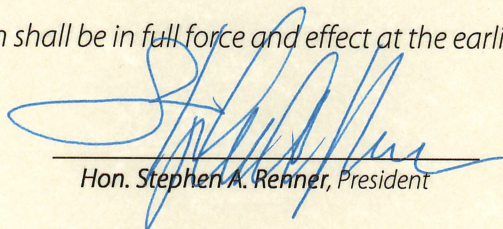 n shall be in full force and effect at the earli
Hon. Stephen A. Renner, President